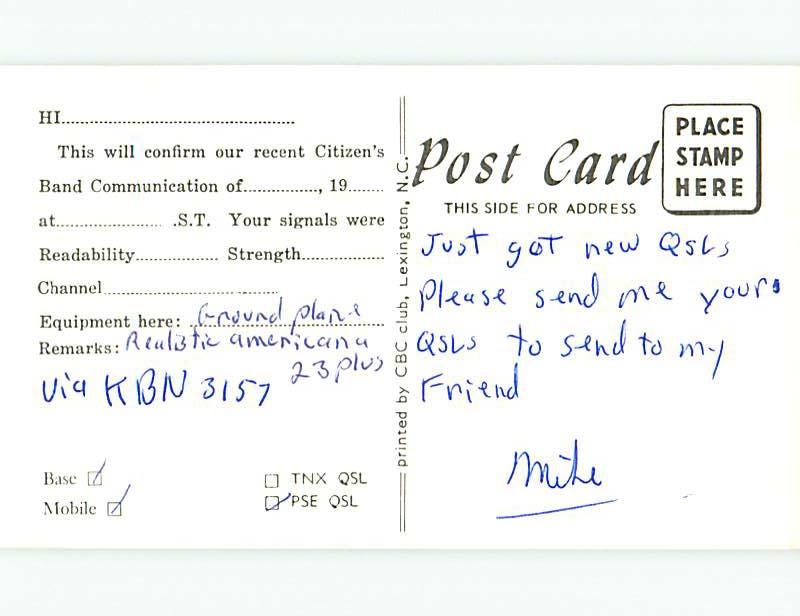 HI
This will confirm our recent Citizen's
Band Communication of..............., 19........
at...................... .S.T. Your signals were
Readability............... Strength...............
Channel
Equipment here: Ground plane
Remarks: Realistic americana
23 plus
Via KBN 3157
Base
Mobile
TNX QSL
PSE QSL
printed by CBC club, Lexington, N.C.
Post Card
THIS SIDE FOR ADDRESS
PLACE
STAMP
HERE
Just got new QSLs
Please send me yours
QSLs to send to my
Friend
Mike